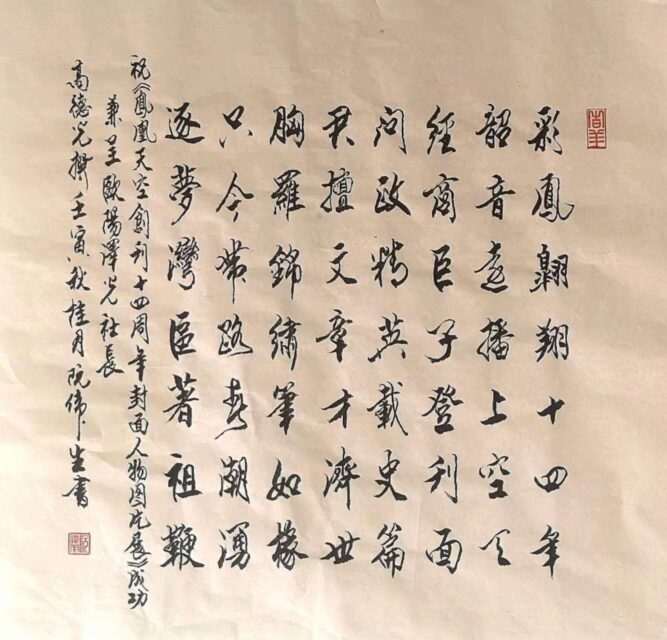 尚美
彩鳳翱翔十四年
韶音遠播上空天
經商巨子登刊面
问政精英載史篇
君擅文章才濟世
胸羅錦繡筆如椽
只今帶路春潮湧
逐夢灣區著祖鞭
祝《鳳凰天空創刊十四周年封面人物图片展》成功
兼呈歐陽澤光社長
高德光撰壬寅秋桂月阮偉生書